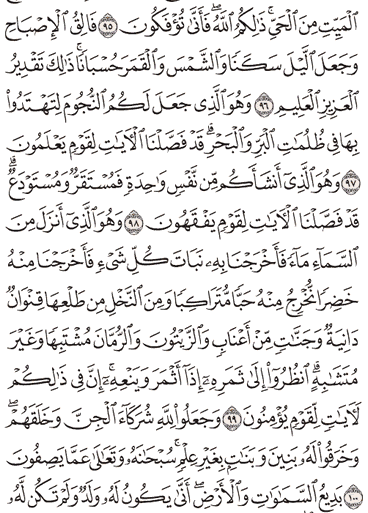 ٱلۡمَيِّتِ مِنَ ٱلۡحَيِّۚ ذَٰلِكُمُ ٱللَّهُۖ فَأَنَّىٰ تُؤۡفَكُونَ ٩٥ فَالِقُ ٱلۡإِصۡبَاحِ
وَجَعَلَ ٱلَّيۡلَ سَكَنٗا وَٱلشَّمۡسَ وَٱلۡقَمَرَ حُسۡبَانٗاۚ ذَٰلِكَ تَقۡدِيرُ
ٱلۡعَزِيزِ ٱلۡعَلِيمِ ٩٦ وَهُوَ ٱلَّذِي جَعَلَ لَكُمُ ٱلنُّجُومَ لِتَهۡتَدُواْ
بِهَا فِي ظُلُمَٰتِ ٱلۡبَرِّ وَٱلۡبَحۡرِۗ قَدۡ فَصَّلۡنَا ٱلۡأٓيَٰتِ لِقَوۡمٖ يَعۡلَمُونَ
٩٧ وَهُوَ ٱلَّذِيٓ أَنشَأَكُم مِّن نَّفۡسٖ وَٰحِدَةٖ فَمُسۡتَقَرّٞ وَمُسۡتَوۡدَعٞۗ
قَدۡ فَصَّلۡنَا ٱلۡأٓيَٰتِ لِقَوۡمٖ يَفۡقَهُونَ ٩٨ وَهُوَ ٱلَّذِيٓ أَنزَلَ مِنَ
ٱلسَّمَآءِ مَآءٗ فَأَخۡرَجۡنَا بِهِۦ نَبَاتَ كُلِّ شَيۡءٖ فَأَخۡرَجۡنَا مِنۡهُ
خَضِرٗا نُّخۡرِجُ مِنۡهُ حَبّٗا مُّتَرَاكِبٗا وَمِنَ ٱلنَّخۡلِ مِن طَلۡعِهَا قِنۡوَانٞ
دَانِيَةٞ وَجَنَّٰتٖ مِّنۡ أَعۡنَابٖ وَٱلزَّيۡتُونَ وَٱلرُّمَّانَ مُشۡتَبِهٗا وَغَيۡرَ
مُتَشَٰبِهٍۗ ٱنظُرُوٓاْ إِلَىٰ ثَمَرِهِۦٓ إِذَآ أَثۡمَرَ وَيَنۡعِهِۦٓۚ إِنَّ فِي ذَٰلِكُمۡ
لَأٓيَٰتٖ لِّقَوۡمٖ يُؤۡمِنُونَ ٩٩ وَجَعَلُواْ لِلَّهِ شُرَكَآءَ ٱلۡجِنَّ وَخَلَقَهُمۡۖ
وَخَرَقُواْ لَهُۥ بَنِينَ وَبَنَٰتِۭ بِغَيۡرِ عِلۡمٖۚ سُبۡحَٰنَهُۥ وَتَعَٰلَىٰ عَمَّا يَصِفُونَ
١٠٠ بَدِيعُ ٱلسَّمَٰوَٰتِ وَٱلۡأَرۡضِۖ أَنَّىٰ يَكُونُ لَهُۥ وَلَدٞ وَلَمۡ تَكُن لَّهُۥ